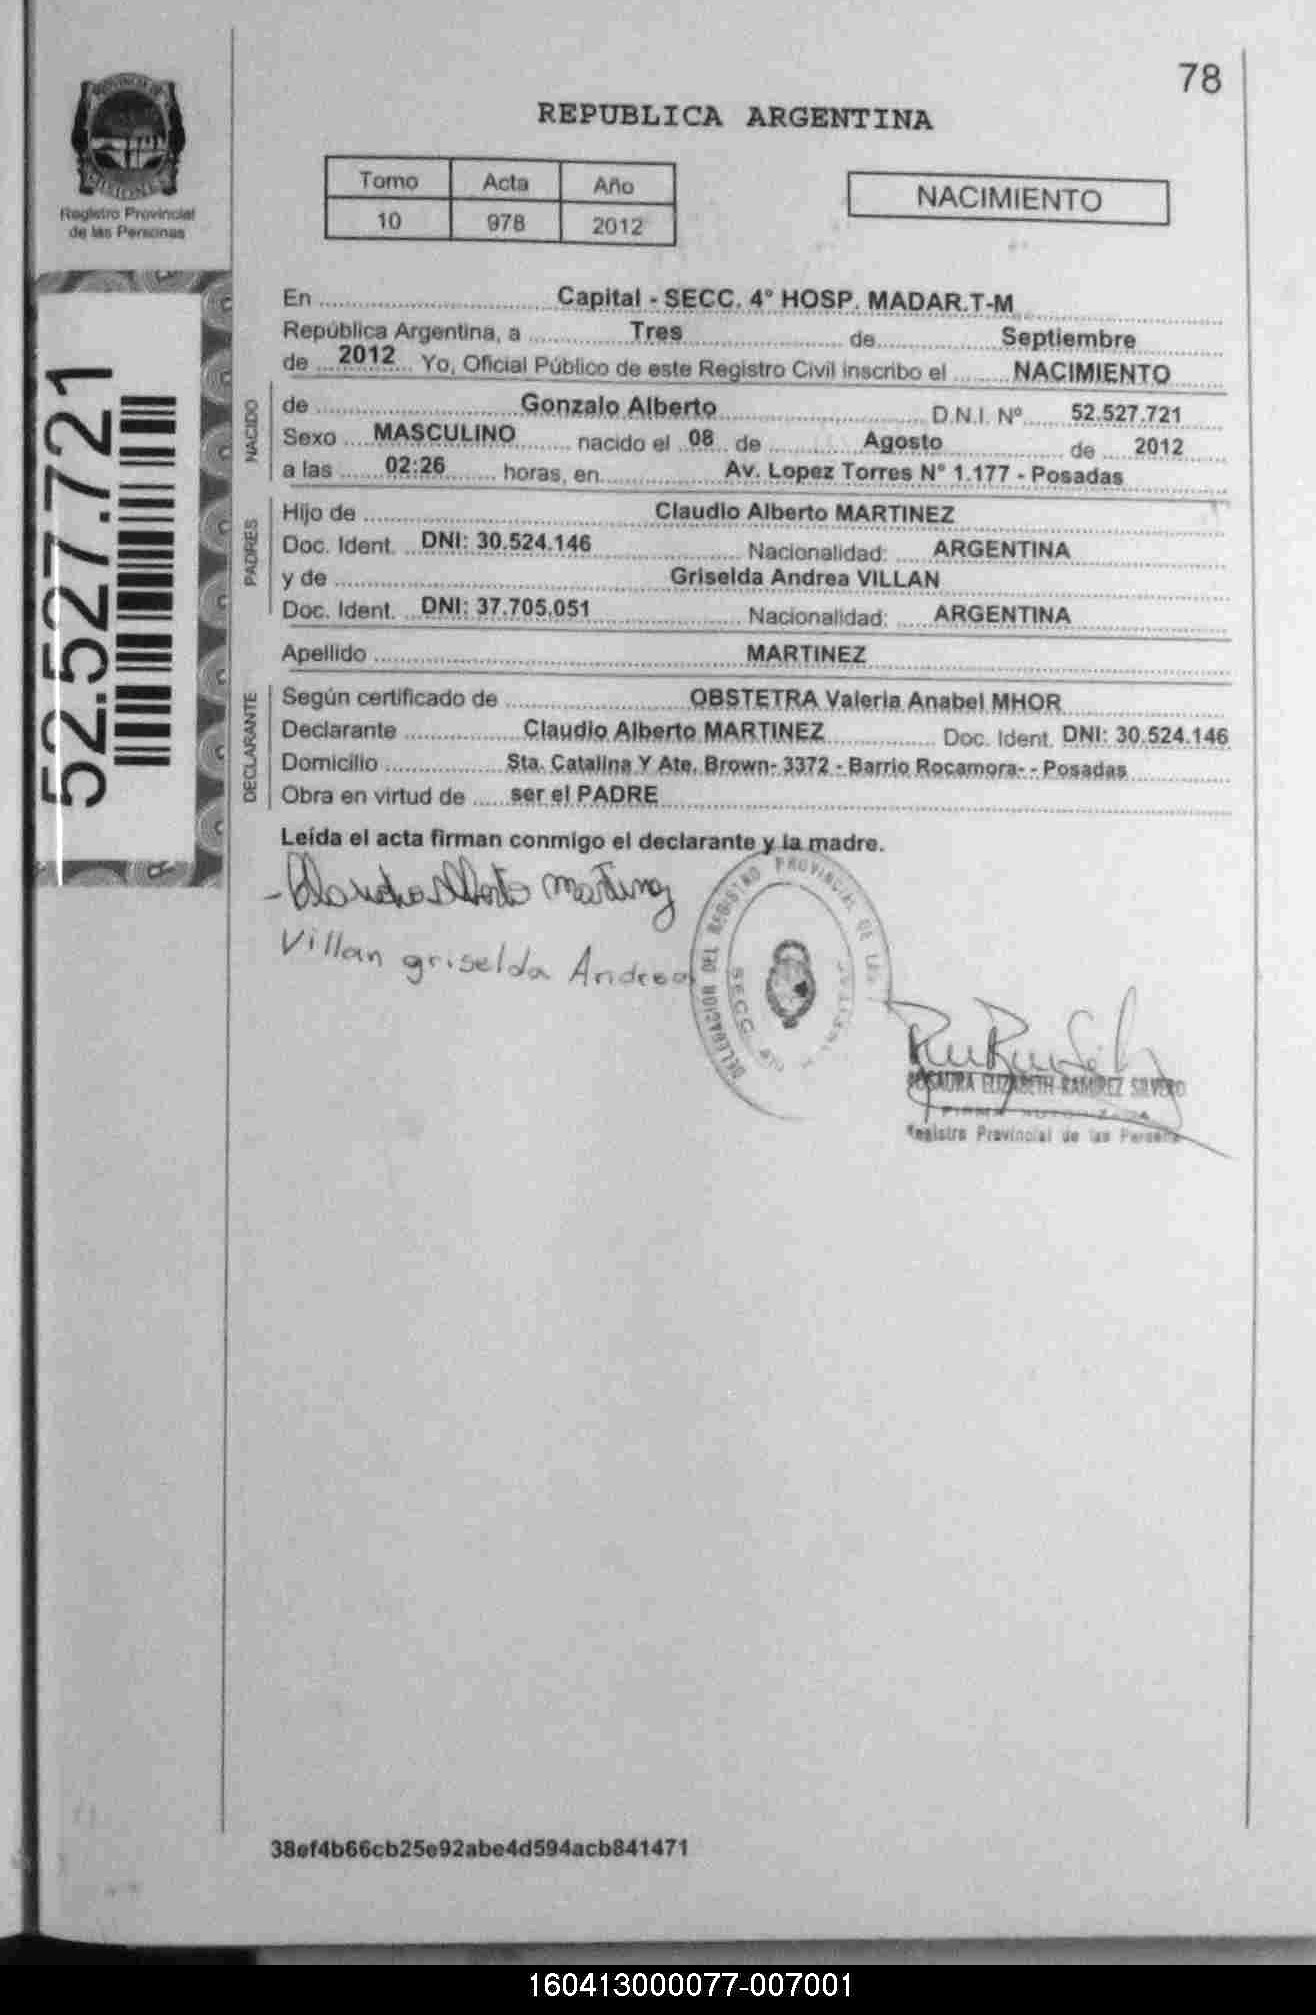 78
REPUBLICA ARGENTINA
PROVINCIA DE
MISIONES
Registro Provincial
de las Personas
Tomo Acta Año
10 978 2012
NACIMIENTO
52.527.721
En Capital - SECC. 4° HOSP. MADAR.T-M
República Argentina, a Tres de Septiembre
de 2012 Yo, Oficial Público de este Registro Civil inscribo el NACIMIENTO
NACIDO
de Gonzalo Alberto D.N.I. Nº 52.527.721
Sexo MASCULINO nacido el 08 de Agosto de 2012
a las 02:26 horas, en Av. Lopez Torres N° 1.177 - Posadas
PADRES
Hijo de Claudio Alberto MARTINEZ
Doc. Ident. DNI: 30.524.146 Nacionalidad: ARGENTINA
y de Griselda Andrea VILLAN
Doc. Ident. DNI: 37.705.051 Nacionalidad: ARGENTINA
Apellido MARTINEZ
DECLARANTE
Según certificado de OBSTETRA Valeria Anabel MHOR
Declarante Claudio Alberto MARTINEZ Doc. Ident. DNI: 30.524.146
Domicilio Sta. Catalina Y Ate. Brown- 3372 - Barrio Rocamora- - Posadas
Obra en virtud de ser el PADRE
Leída el acta firman conmigo el declarante y la madre.
- Claudio Alberto Martinez
Villan griselda Andrea
DELEGACION DEL REGISTRO PROVINCIAL DE LAS
SECC. 4º
ROSAURA ELIZABETH RAMIREZ SILVERO
FIRMA AUTORIZADA
Registro Provincial de las Persona
38ef4b66cb25e92abe4d594acb841471
160413000077-007001